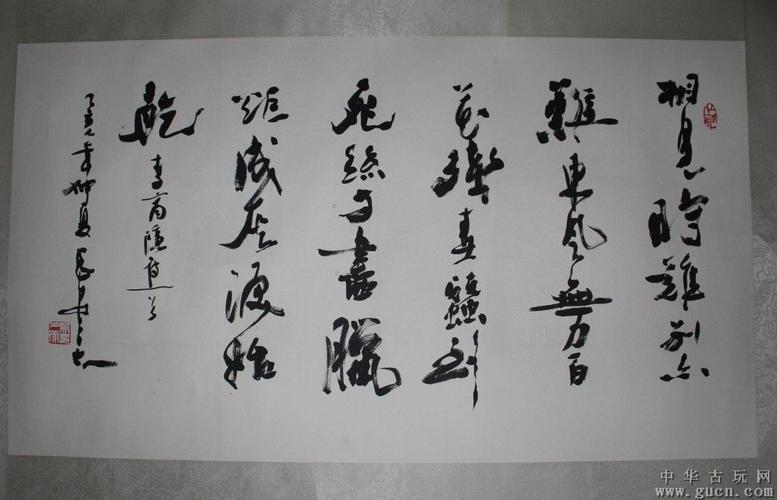 相見時難別亦
難東風無力百
花殘春蠶到
死絲方盡臘
炬成灰淚始
乾 李商隱
乙亥年仲夏
中华古玩网
www.gucn.com